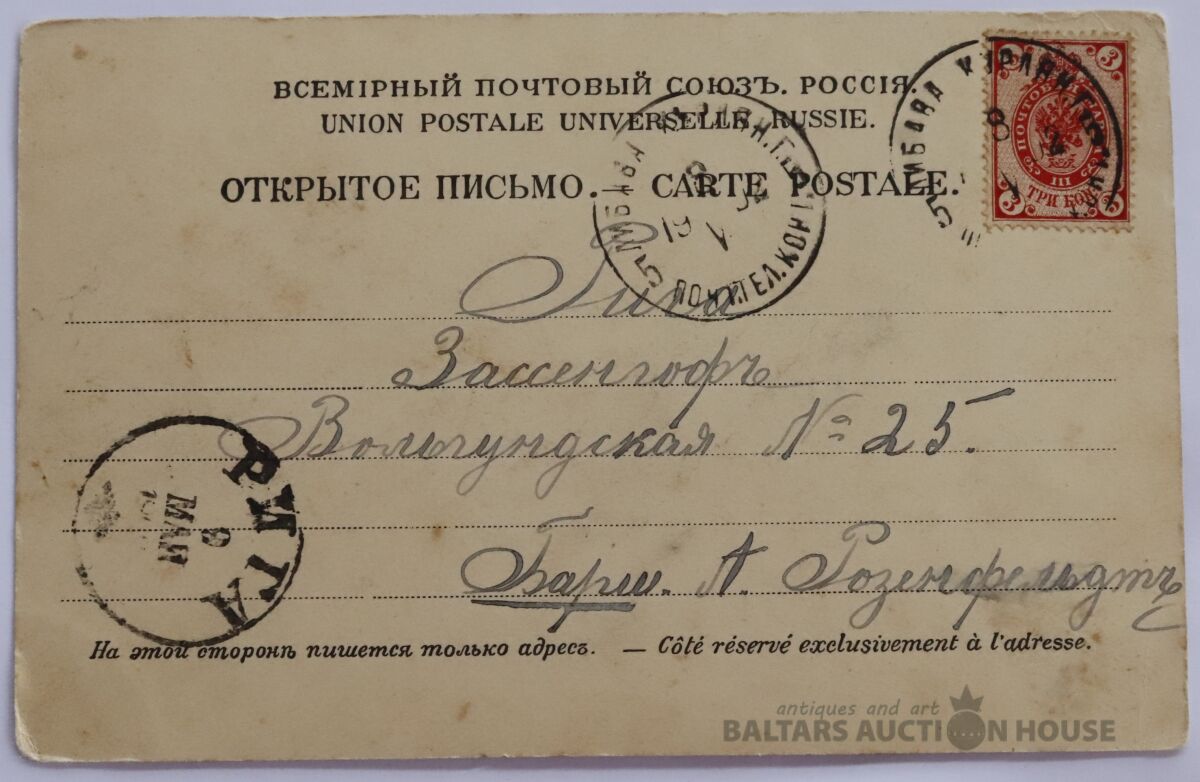 ВСЕМІРНЫЙ ПОЧТОВЫЙ СОЮЗЪ. РОССІЯ.
UNION POSTALE UNIVERSELLE. RUSSIE.
ОТКРЫТОЕ ПИСЬМО. — CARTE POSTALE.
3 3
ПОЧТОВАЯ МАРКА
III
ТРИ КОП.
3 3
5 ЛИБАВА КУРЛЯН. Г.
8
5 ЛИБАВА КУРЛЯН. Г. ПОЧ. ТЕЛ. КОН.
8
Рига
Зассенгофъ
Вольгундская № 25.
Барш. А. Розенфельдтъ
РИГА
9
МАЯ
На этой сторонѣ пишется только адресъ. — Côté réservé exclusivement à l'adresse.
antiques and art
BALTARS AUCTION HOUSE